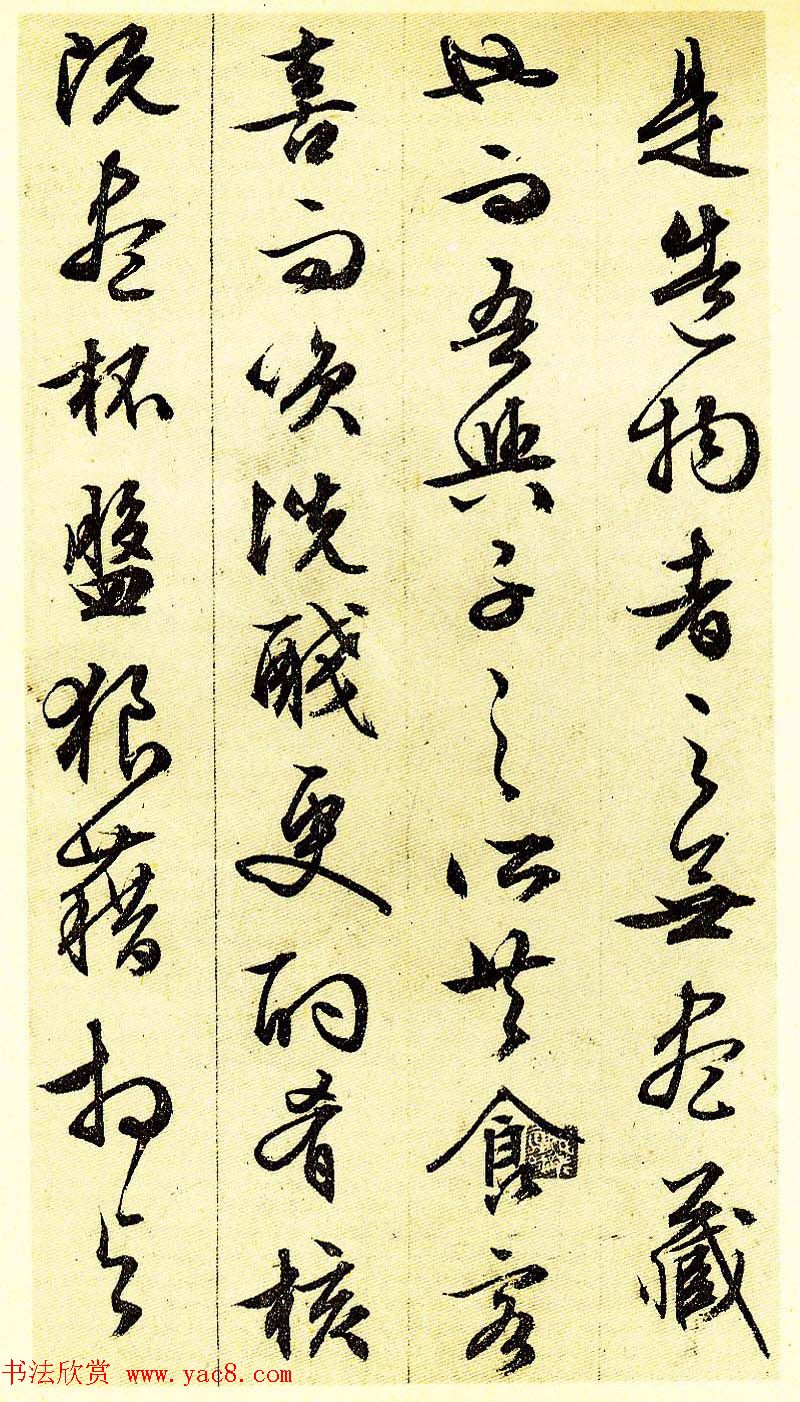 是造物者之無盡藏
也而吾與子之所共食客
喜而笑洗醆更酌肴核
既盡杯盤狼藉相与
书法欣赏 www.yac8.com